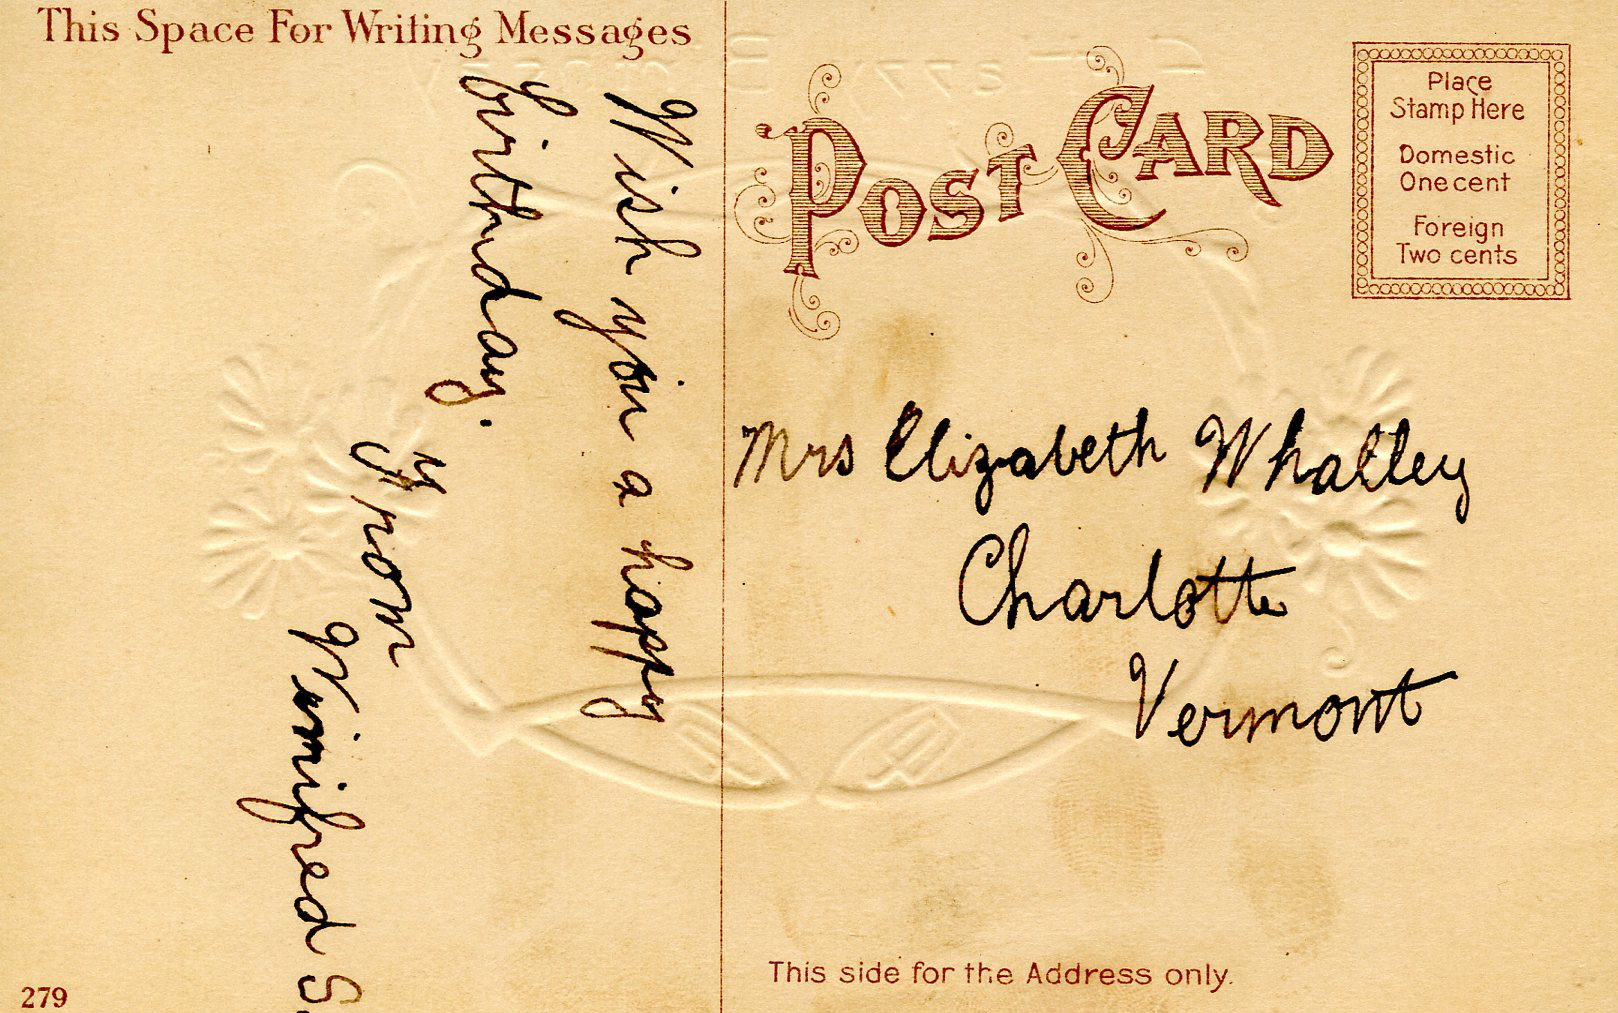 This Space For Writing Messages
Wish you a happy
birthday.
From
Winifred S.
279
POST CARD
Place
Stamp Here
Domestic
One cent
Foreign
Two cents
Mrs Elizabeth Whalley
Charlotte
Vermont
This side for the Address only.